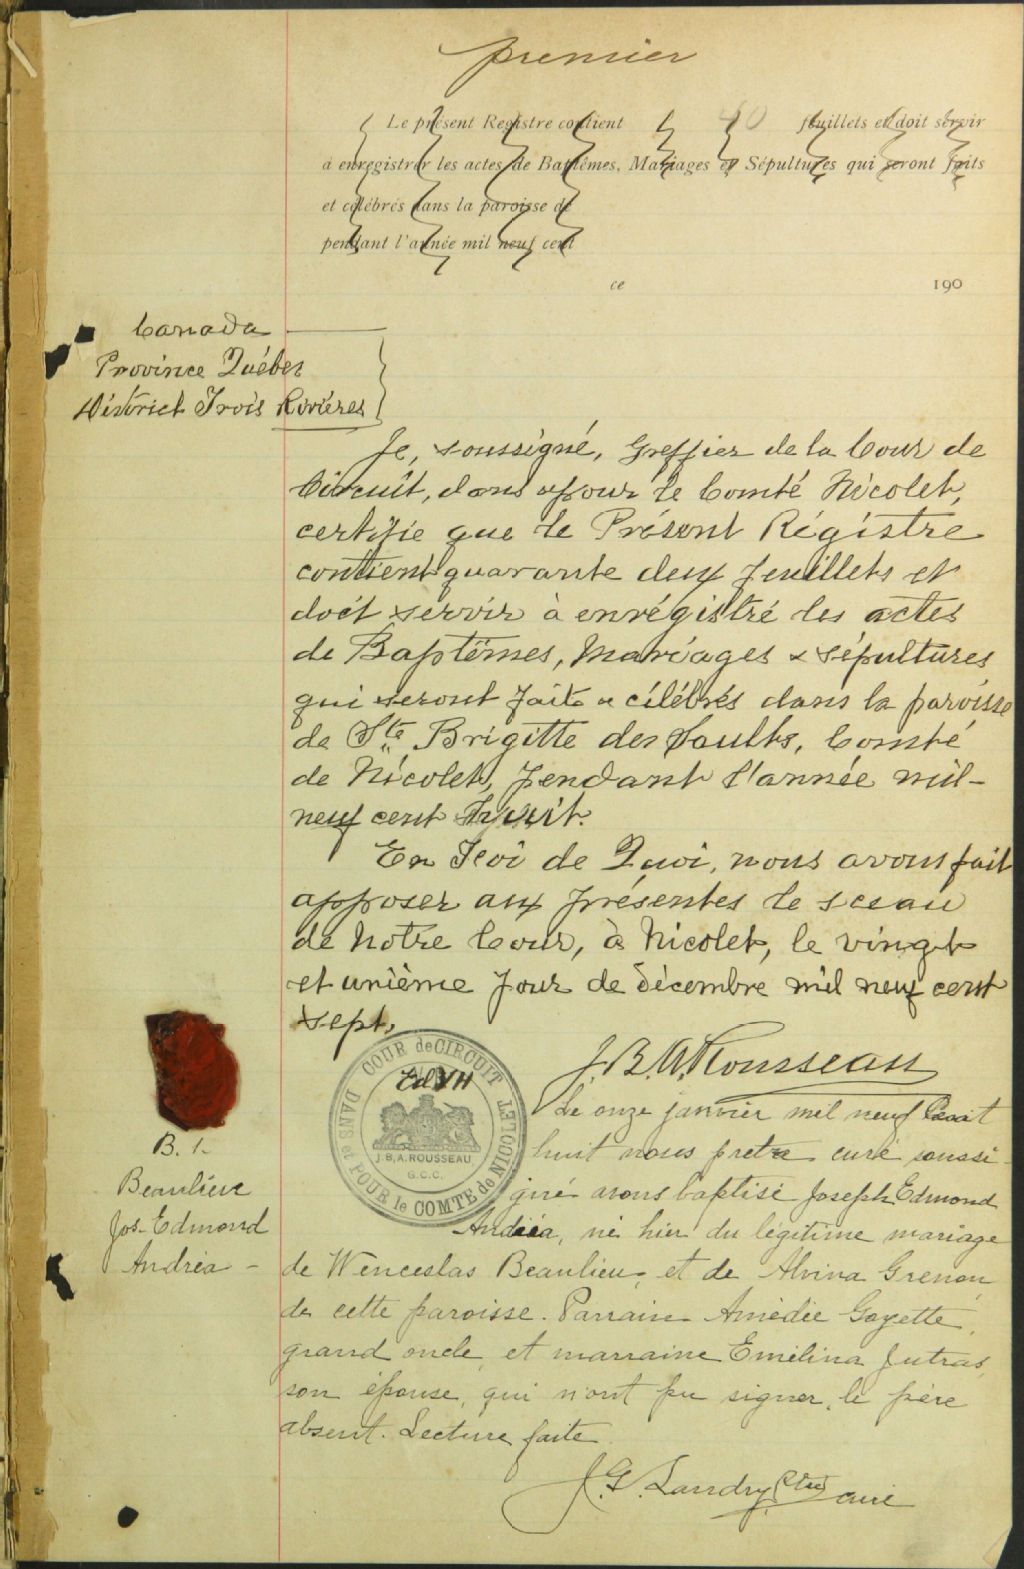 premier
Le présent Registre contient 40 feuillets et doit servir
à enregistrer les actes de Baptêmes, Mariages et Sépultures qui seront faits
et célébrés dans la paroisse de
pendant l'année mil neuf cent
ce 190
Canada
Province Québec
District Trois Rivières
Je, soussigné, Greffier de la Cour de
Circuit, dans & pour le Comté Nicolet,
certifie que le Présent Régistre
contient quarante deux feuillets et
doit servir à enrégistré les actes
de Baptêmes, Mariages & sépultures
qui seront faits & célébrés dans la paroisse
de Ste Brigitte des Saults, Comté
de Nicolet, pendant l'année mil-
neuf cent huit.
En Foi de Quoi, nous avons fait
apposer aux présentes le sceau
de Notre Cour, à Nicolet, le vingt
et unième jour de décembre mil neuf cent
sept.
J.B.A. Rousseau
COUR de CIRCUIT
DANS et POUR le COMTE de NICOLET
J.B.A. ROUSSEAU
G.C.C.
B. 1.
Beaulieu
Jos-Edmond
Andréa -
Le onze janvier mil neuf cent
huit nous pretre curé soussi-
gné avons baptisé Joseph Edmond
Andréa, né hier du légitime mariage
de Wenceslas Beaulieu, et de Alvina Grenon,
de cette paroisse. Parrain Amédée Goyette,
grand oncle, et marraine Emélina Jutras,
son épouse, qui n'ont pu signer, le père
absent. Lecture faite
J.G. Landry Ptre curé